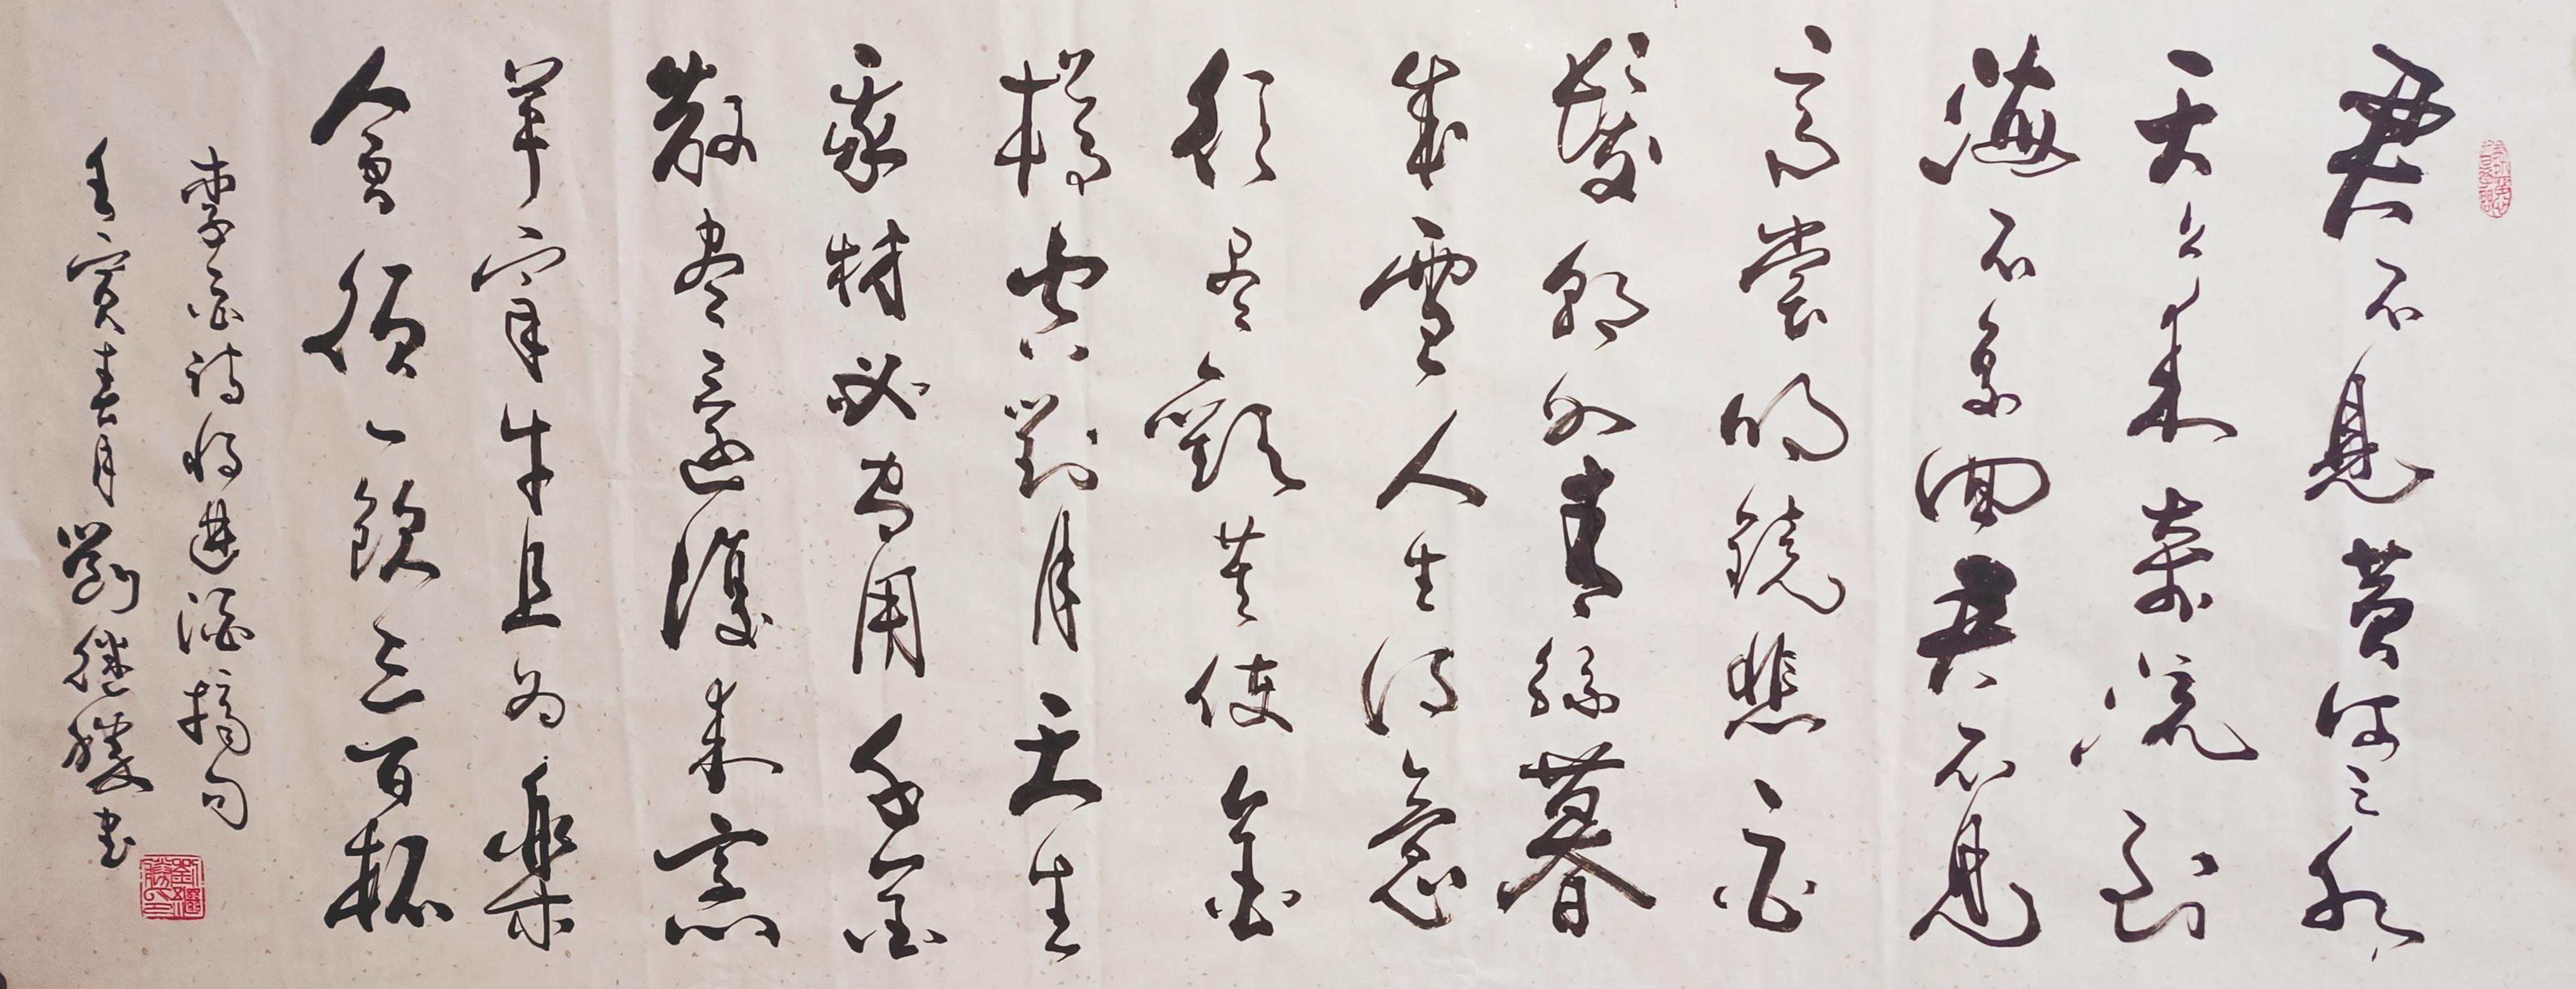 君不見黃河之水
天上来奔流到
海不復回君不見
高堂明鏡悲白
髮朝如青絲暮
成雪人生得意
須尽歡莫使金
樽空對月天生
我材必有用千金
散尽還復来烹
羊宰牛且為樂
會須一飲三百杯
李白詩將進酒摘句
壬寅春月劉繼勝書
劉繼勝印